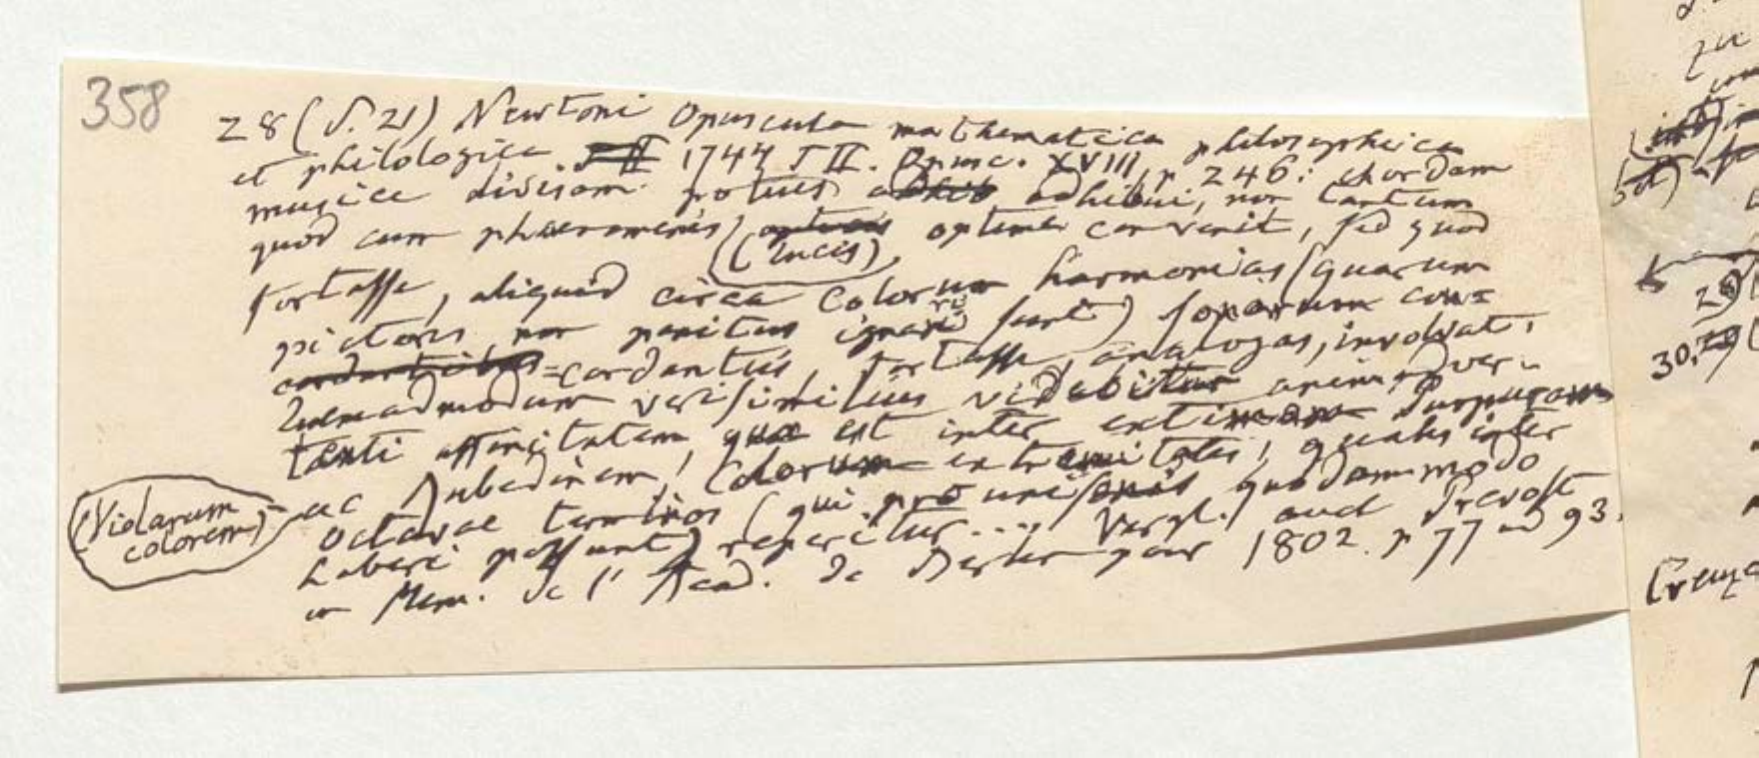 358
28 (S. 21) Newtoni Opuscula mathematica philosophica
et philologica. T II 1744 T II. Opusc. XVIII, p 246: chordam
musice divisam potius adhib adhibui, non tantum
quod cum phaenomenis (lucis) optime convenit, sed quod
fortasse, aliquid circa colorum harmonias (quarum
pictores non penitus ignari sunt) sonorum con=
cordantibus =cordantiis, fortasse, analogas, involvat.
Quemadmodum verisimilius videbitur animadver-
tenti affinitatem, quae est inter extimam Purpuram
(Violarum
colorem)
ac Rubedinem, Colorum extremitates, qualis inter
octavae terminos (qui pro unisonis quodammodo
haberi possunt) reperitur.... Vergl. auch Prevost
in Mem. de l'Acad. de Berlin pour 1802. p 77 93.
28
30,
Creuz